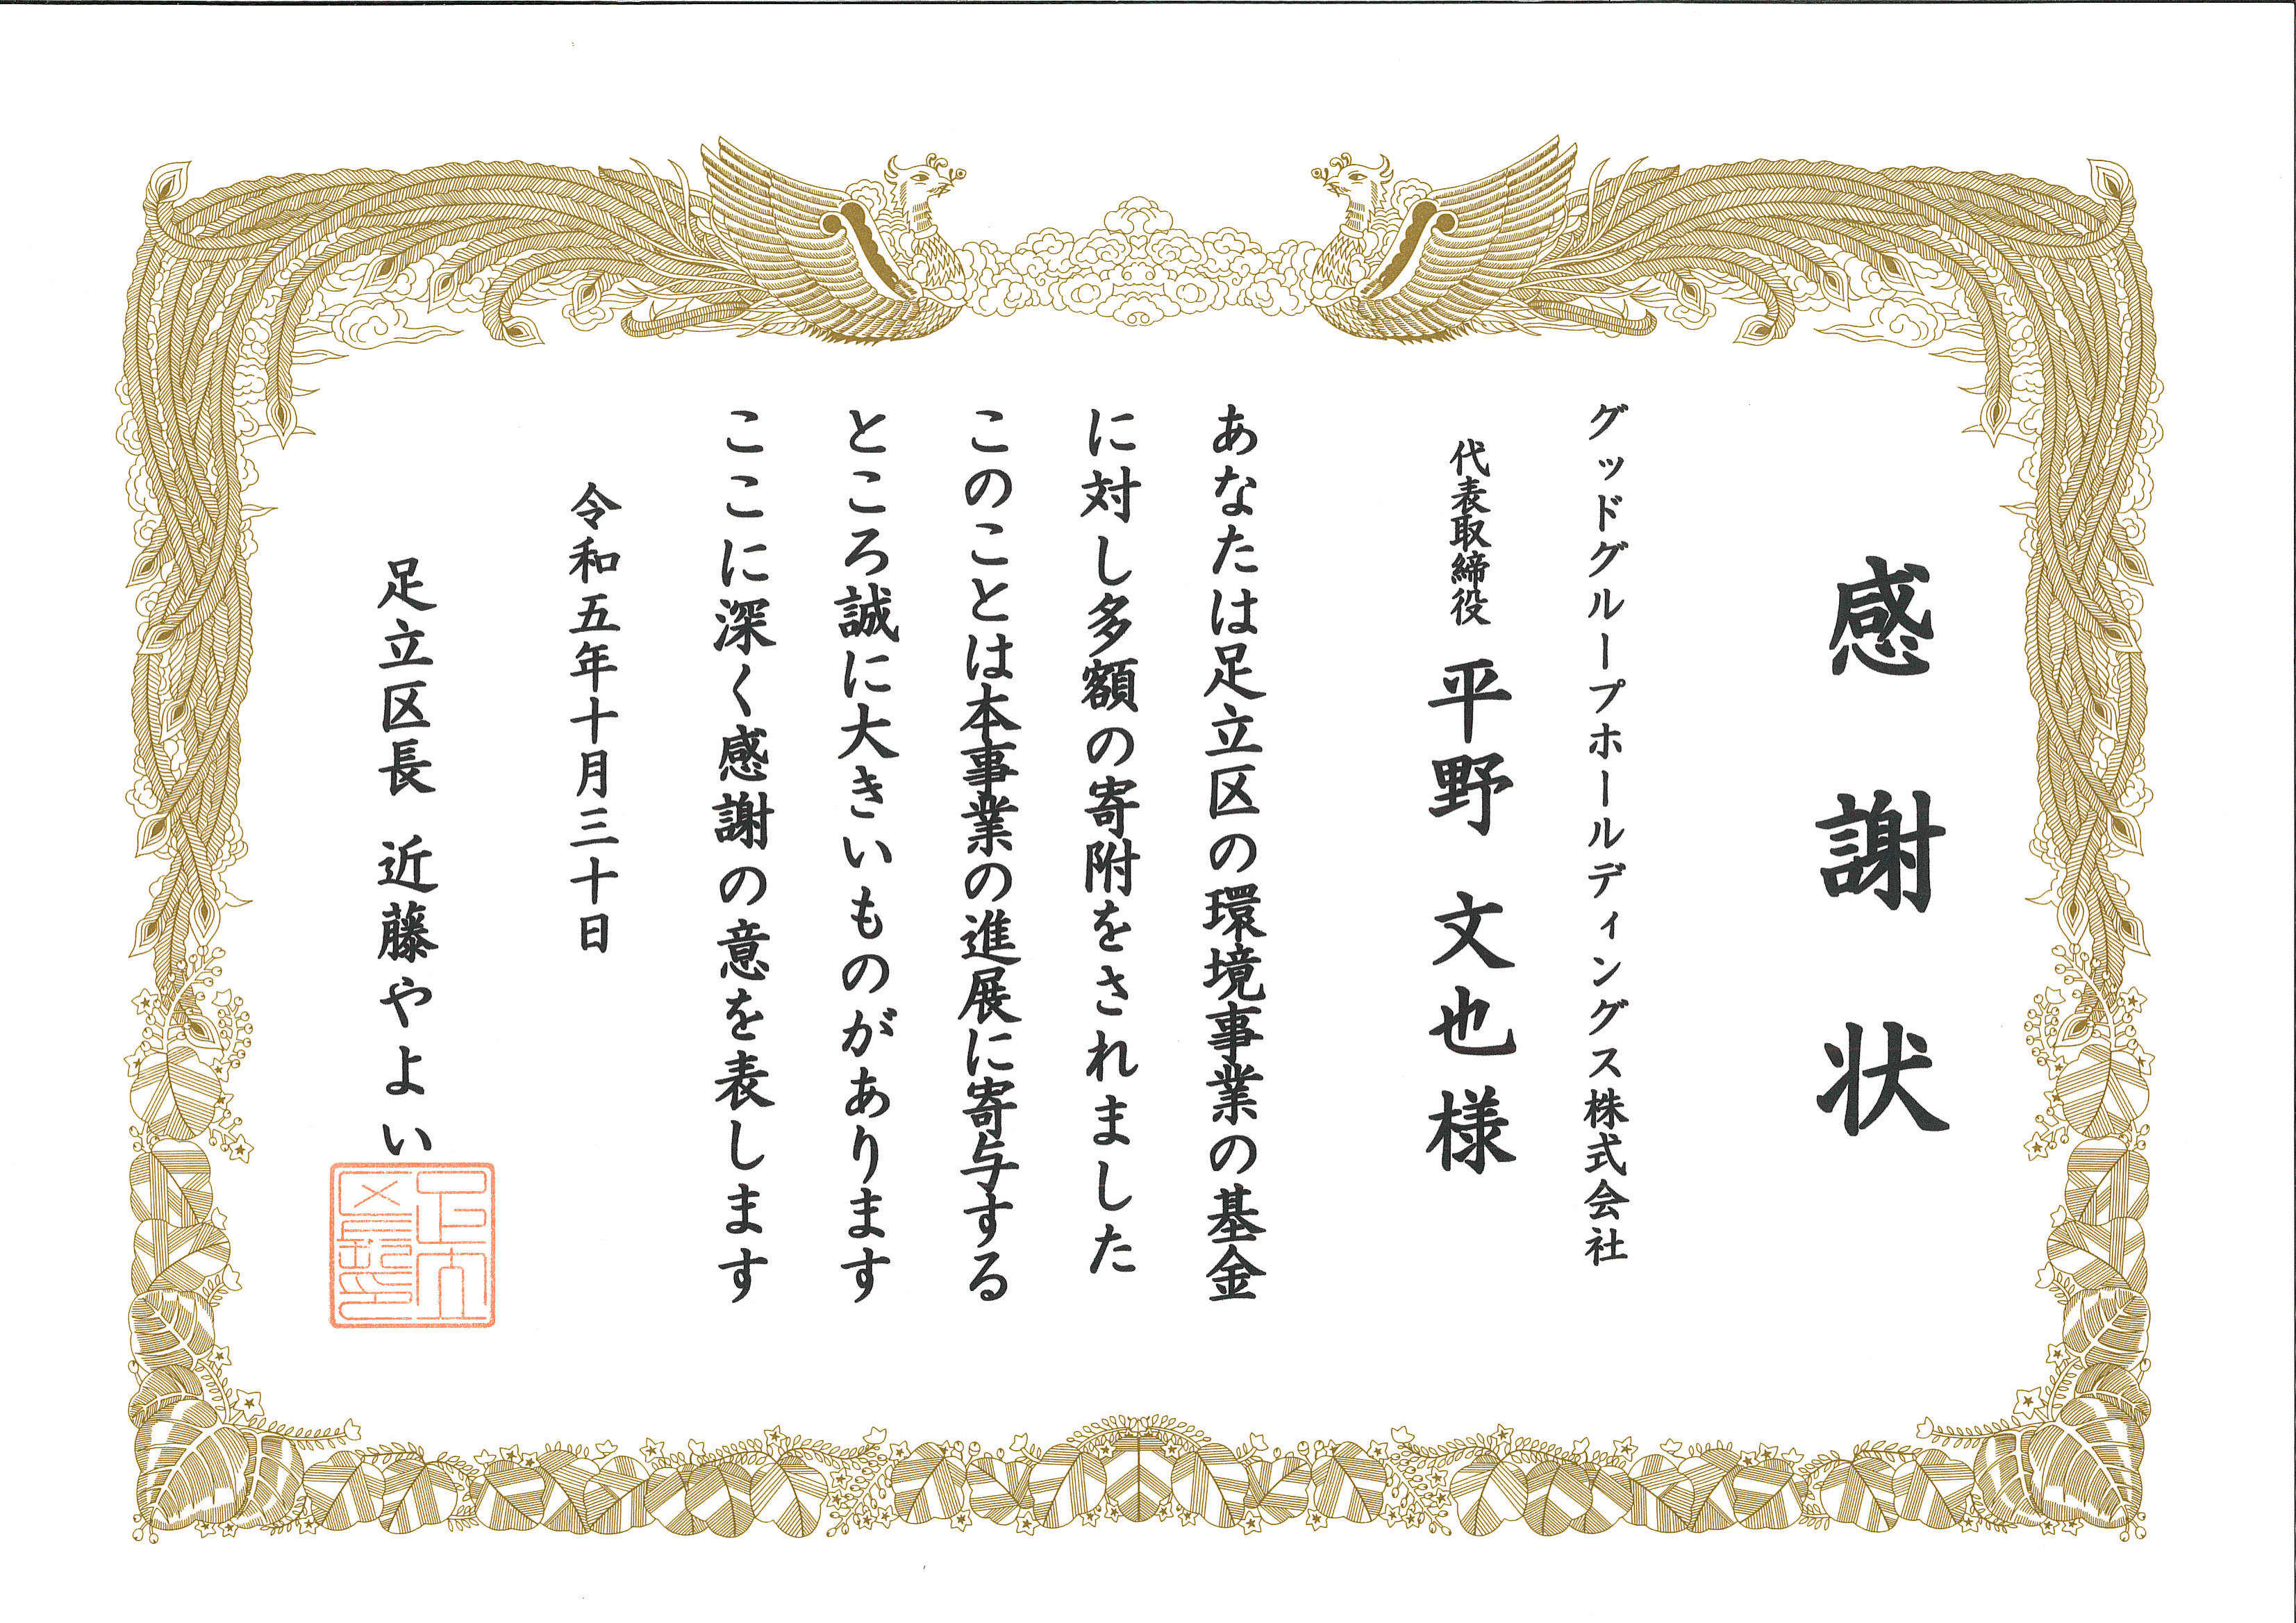 感謝状
グッドグループホールディングス株式会社
代表取締役 平野 文也 様
あなたは足立区の環境事業の基金
に対し多額の寄附をされました
このことは本事業の進展に寄与する
ところ誠に大きいものがあります
ここに深く感謝の意を表します
令和五年十月三十日
足立区長 近藤やよい